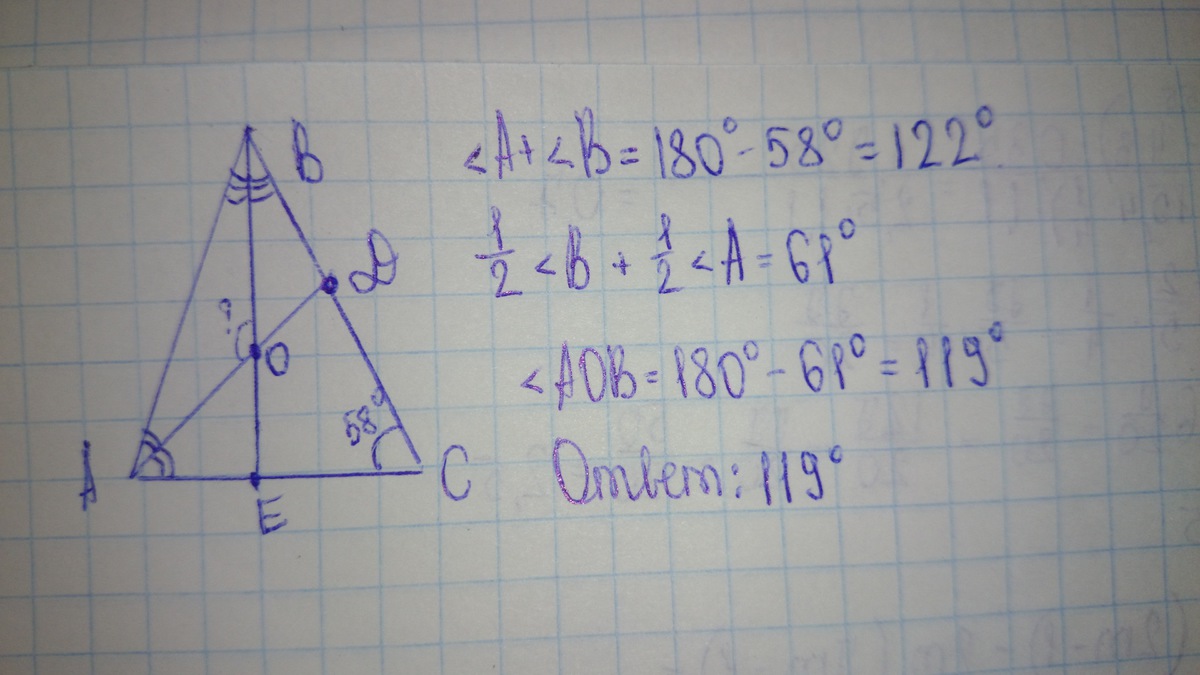 B
D
?
O
58°
A
E
C
<A+<B=180°-58°=122°
1/2 <B + 1/2 <A=61°
<AOB=180°-61°=119°
Ответ: 119°